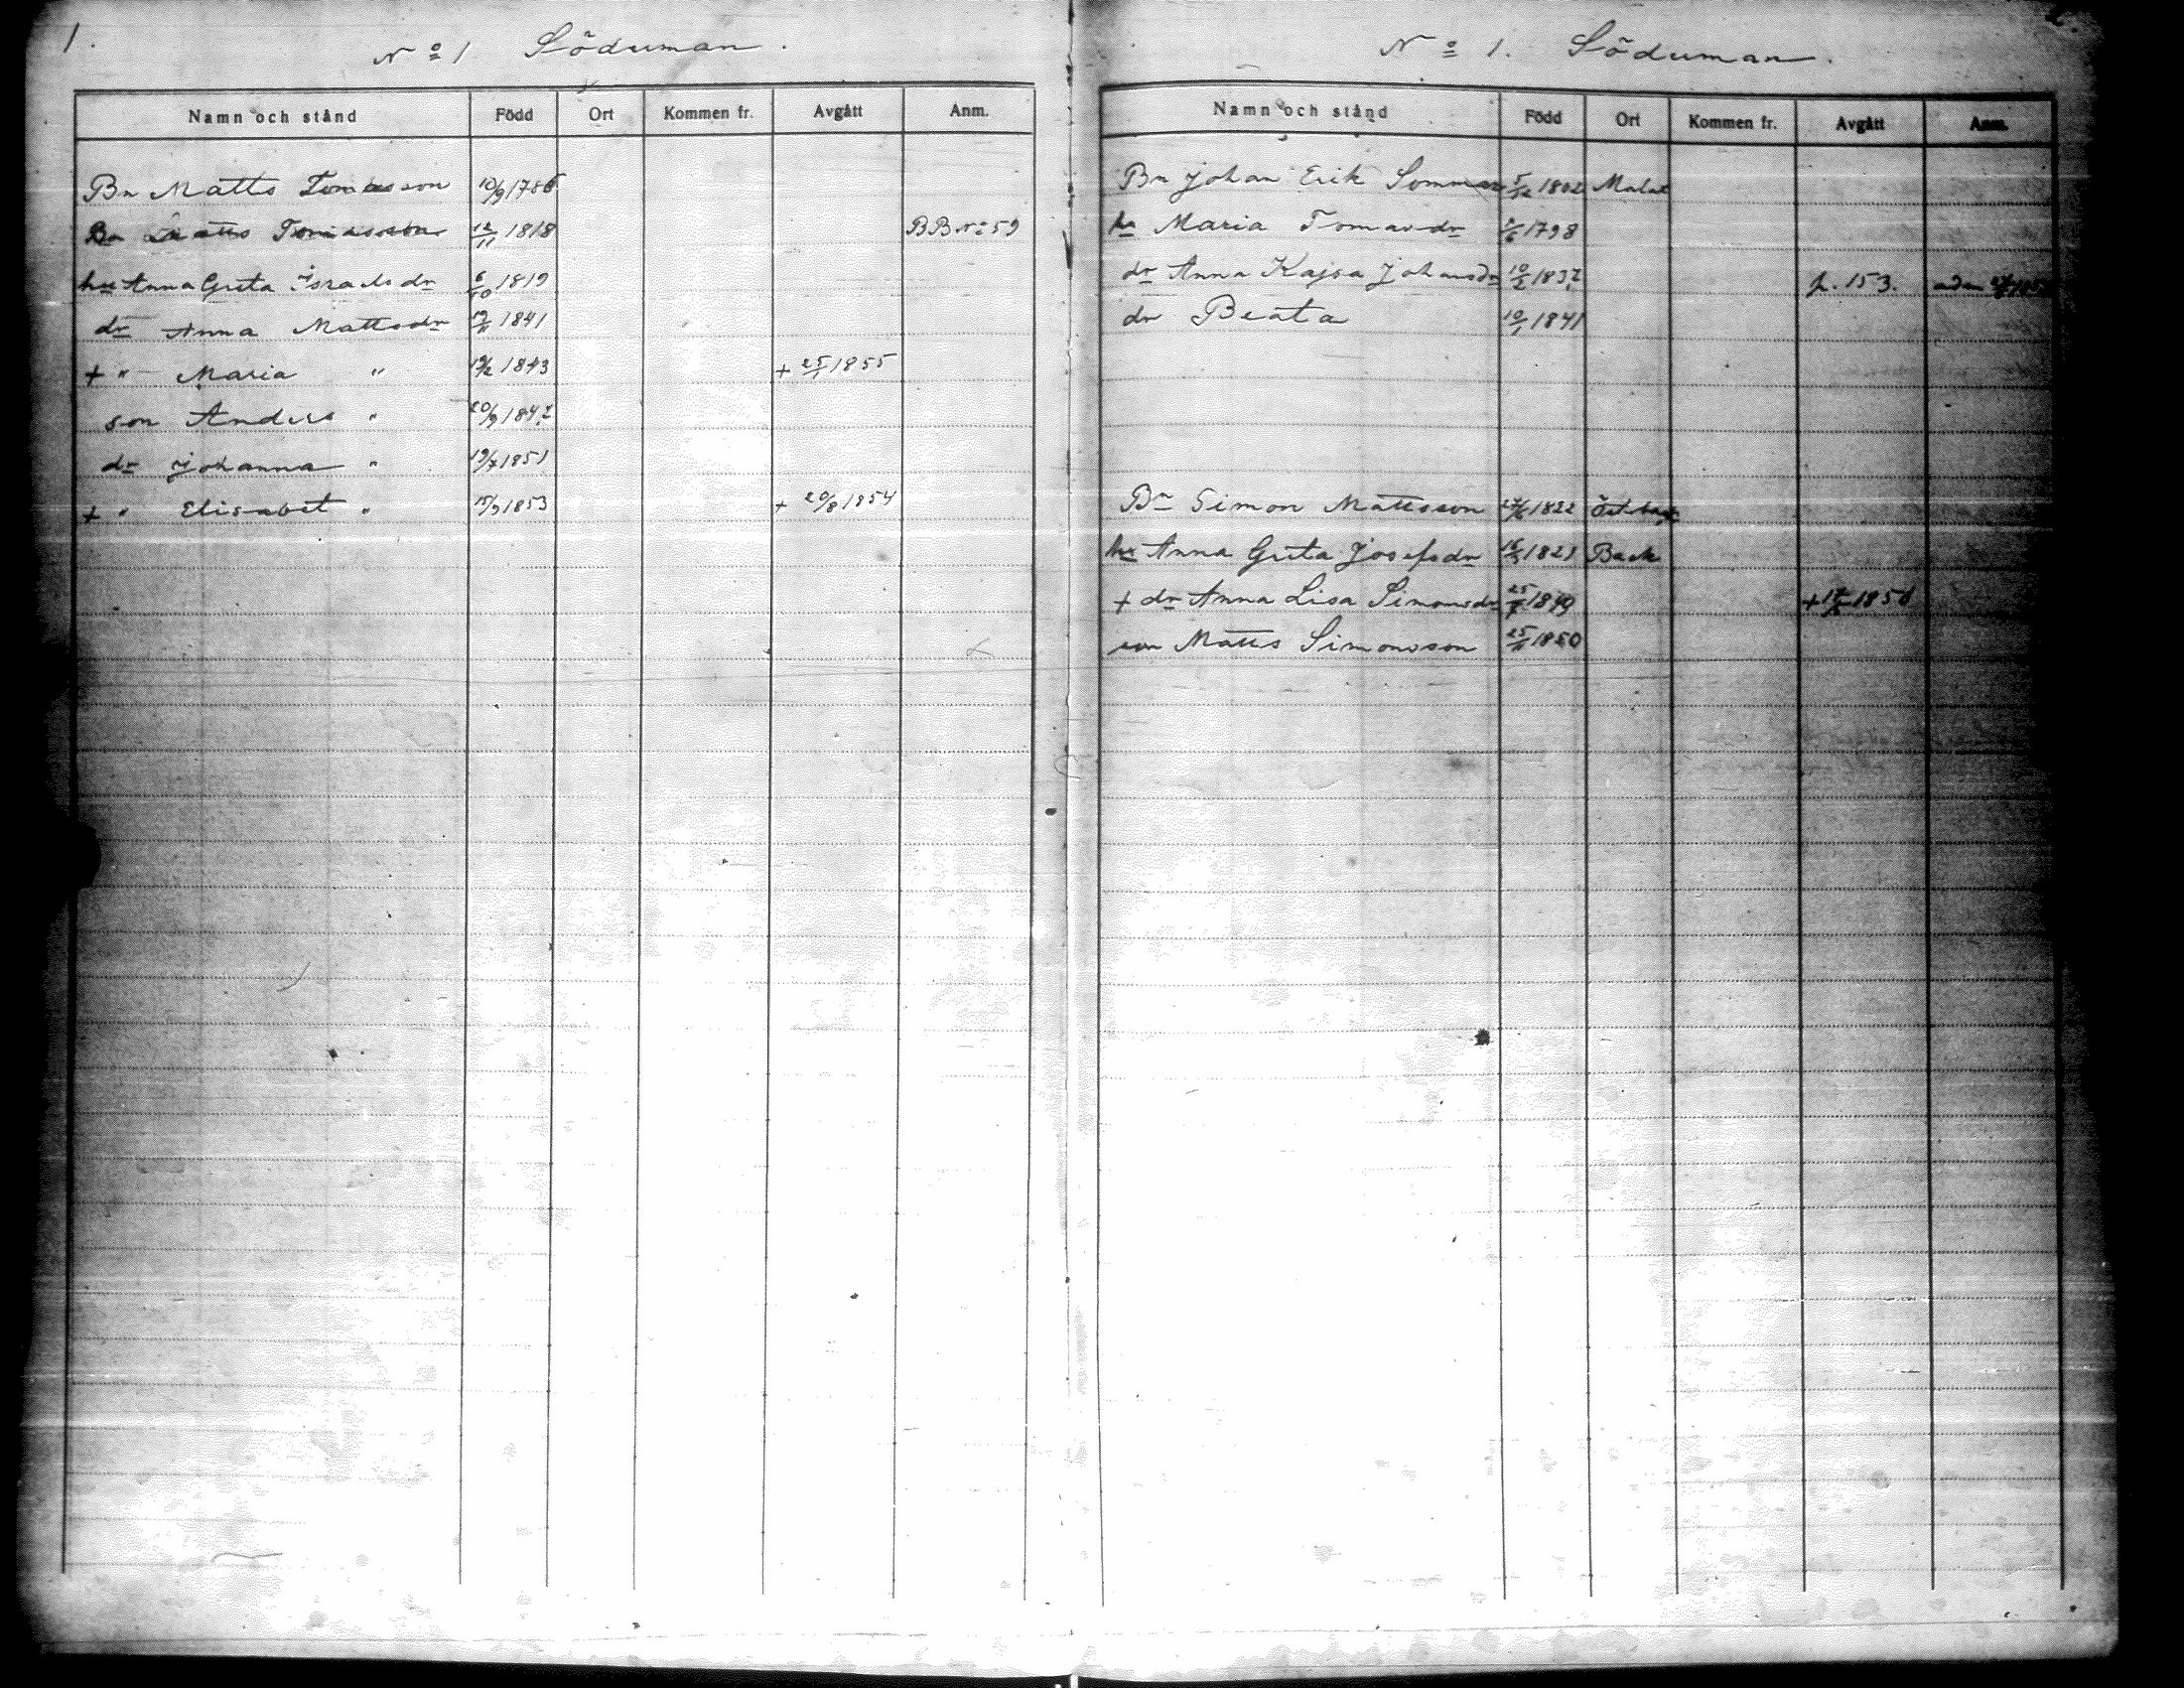 1.
No 1 Söderman.
Namn och stånd Född Ort Kommen fr. Avgått Anm.
Bn Matts Tomasson 10/9 1786
Bn Matts Tomasson 12/11 1818 BB No 59
hu Anna Greta Israelsdr 6/10 1819
dr Anna Mattsdr 1841
+ " Maria " 1843 + 25/1 1855
son Anders " 20/9 1847
dr Johanna " 19/7 1851
+ " Elisabet " 15/9 1853 + 20/8 1854
No 1. Söderman.
Namn och stånd Född Ort Kommen fr. Avgått Anm.
Bn Johan Erik 5/12 1802 Malax
hu Maria Tomasdr 1798
dr Anna Kajsa Johansdr 10/2 1837 p. 153.
dr Beata 10/1 1841
Bn Simon Mattsson 1822
hu Anna Greta Josefsdr 1823 Back
+ dr Anna Lisa Simonsdr 1849 +
son Matts Simonsson 1850